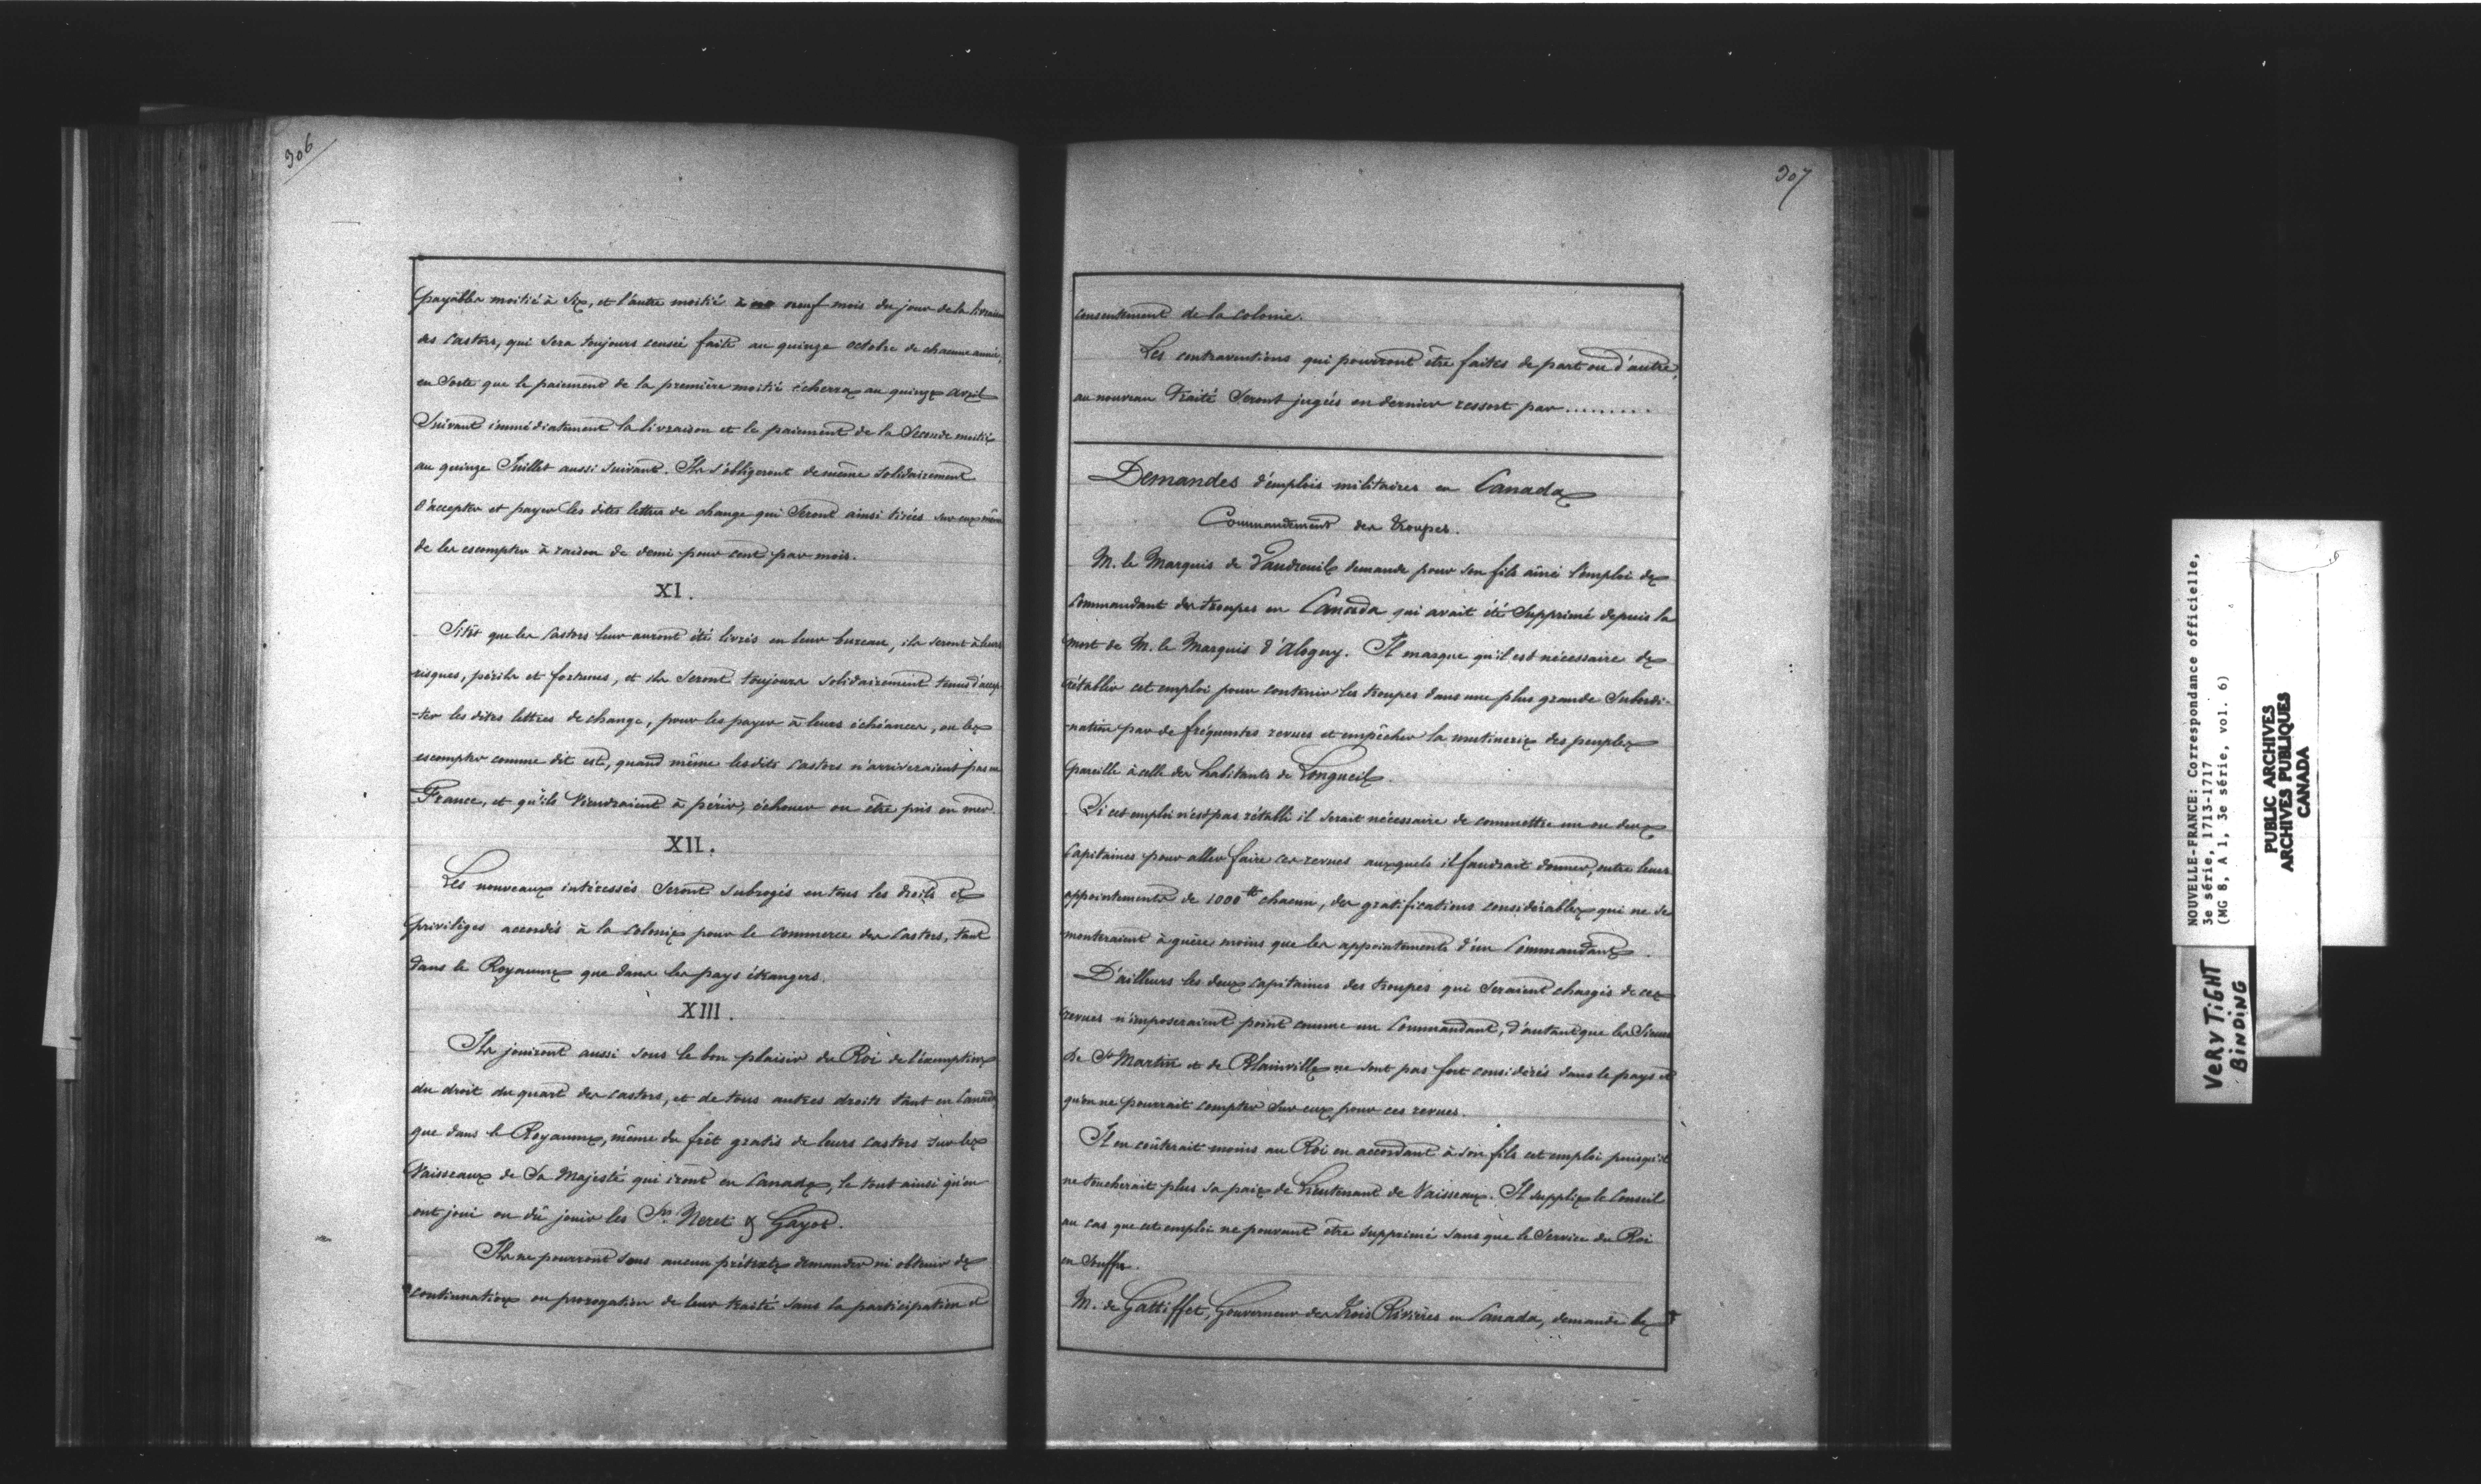 306
payables moitié à six, et l'autre moitié à neuf mois du jour de la livraison
des castors, qui sera toujours censée faite au quinze octobre de chacune année,
en sorte que le paiement de la première moitié écherra au quinze avril
suivant immédiatement la livraison et le paiement de la seconde moitié
au quinze Juillet aussi suivant. Ils s'obligeront de même solidairement
d'accepter et payer les dites lettres de change qui seront ainsi tirées sur eux même
de les escompter à raison de demi pour cent par mois.
XI.
Sitôt que les castors leur auront été livrés en leur bureau, ils seront à leurs
risques, périls et fortunes, et ils seront toujours solidairement tenus d'accep
-ter les dites lettres de change, pour les payer à leurs échéances, ou les
escompter comme dit est, quand même lesdits castors n'arriveraient pas en
France, et qu'ils viendraient à périr, échouer ou être pris en mer.
XII.
Les nouveaux intéressés seront subrogés en tous les droits et
privilèges accordés à la colonie pour le commerce des castors, tant
dans le Royaume que dans les pays étrangers.
XIII.
Ils jouiront aussi sous le bon plaisir du Roi de l'exemption
du droit du quart des castors, et de tous autres droits tant en Canada
que dans le Royaume, même du frêt gratis de leurs castors sur les
Vaisseaux de Sa Majesté qui iront en Canada, le tout ainsi qu'en
ont joui ou dû jouir les Srs Neret & Gayot.
Ils ne pourront sous aucun prétexte demander ni obtenir de
continuation ou prorogation de leur traité sans la participation et
307
consentement de la colonie.
Les contraventions qui pourront être faites de part ou d'autre,
au nouveau Traité seront jugées en dernier ressort par .........
Demandes d'emplois militaires en Canada
Commandement des troupes.
M. le Marquis de Vaudreuil demande pour son fils aîné l'emploi de
Commandant des troupes en Canada qui avait été supprimé depuis la
mort de M. le Marquis d'Alogny. Il marque qu'il est nécessaire de
rétablir cet emploi pour contenir les troupes dans une plus grande subordi-
-nation par de fréquentes revues et empêcher la mutinerie des peuples
pareille à celle des habitants de Longueil.
Si cet emploi n'est pas rétabli il serait nécessaire de commettre un ou deux
Capitaines pour aller faire ces revues auxquels il faudrait donner, outre leurs
appointements de 1000 tt chacun, des gratifications considérables qui ne se
monteraient à guère moins que les appointements d'un Commandant.
D'ailleurs les deux capitaines des troupes qui seraient chargés de ces
revues n'imposeraient point comme un Commandant, d'autant que les Sieurs
de St Martin et de Blainville ne sont pas fort considérés dans le pays et
qu'on ne pourrait compter sur eux pour ces revues.
Il en coûterait moins au Roi en accordant à son fils cet emploi puisqu'il
ne toucherait plus sa paie de Lieutenant de Vaisseau. Il supplie le Conseil
au cas que cet emploi ne pouvant être supprimé sans que le Service du Roi
en souffre.
M. de Galliffet, Gouverneur des Trois Rivières en Canada, demande le
NOUVELLE-FRANCE: Correspondance officielle,
3e série, 1713-1717
(MG 8, A 1, 3e série, vol. 6)
PUBLIC ARCHIVES
ARCHIVES PUBLIQUES
CANADA
VERY TIGHT
BINDING